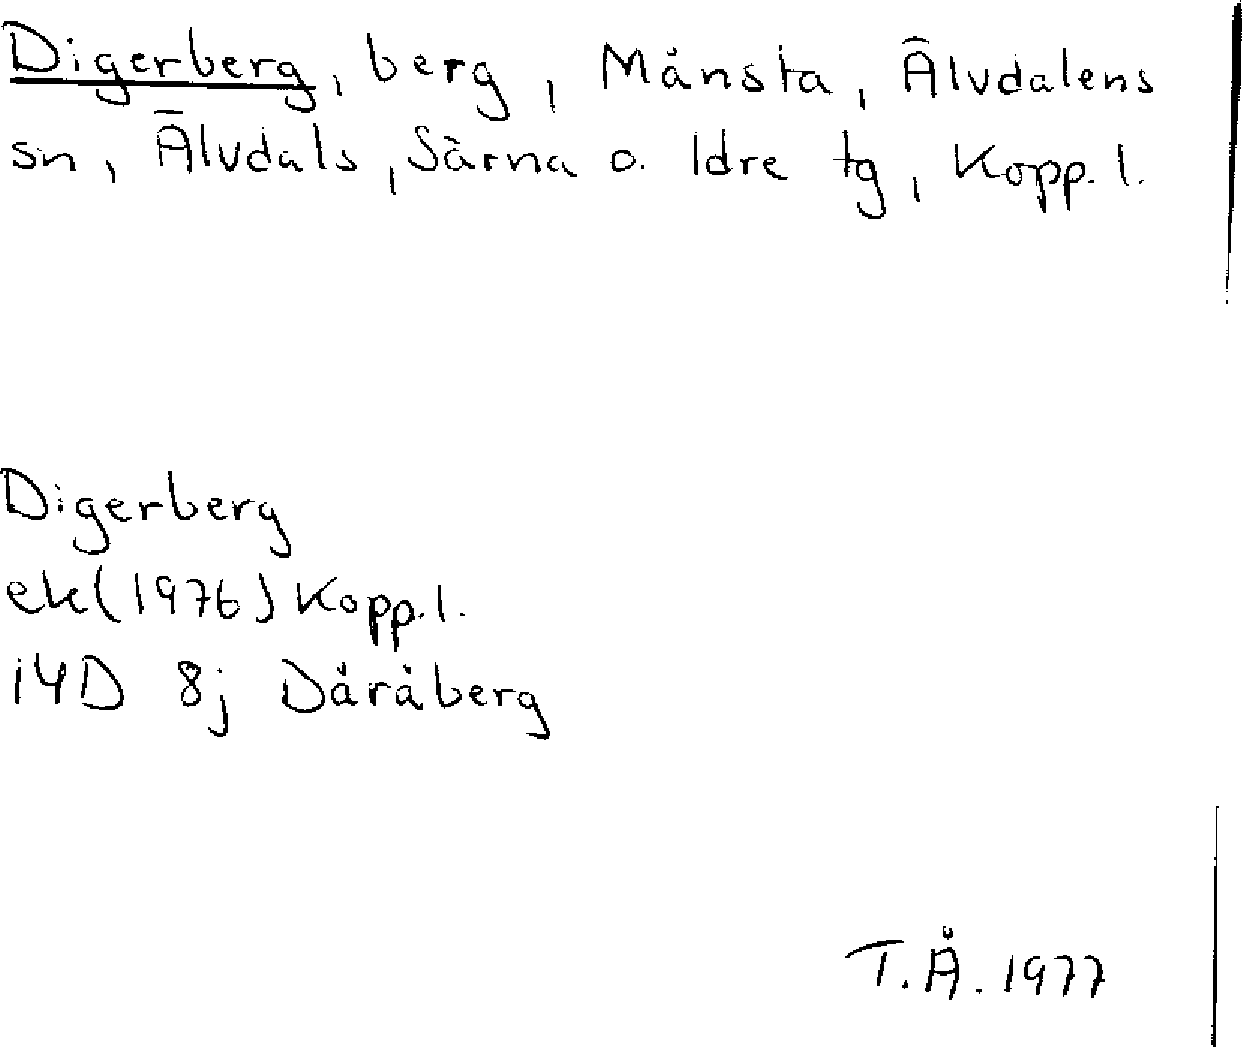 Digerberg, berg, Månsta, Älvdalens
sn, Älvdals, Särna o. Idre tg, Kopp. l.
Digerberg
ek(1976) Kopp. l.
14D 8j Dåråberg
T. Å. 1977